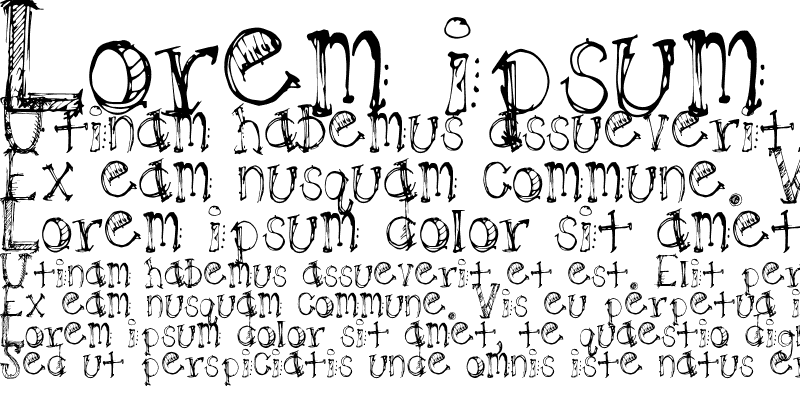 Lorem ipsum
Utinam habemus assueverit
Ex eam nusquam commune. V
Lorem ipsum color sit amet
Utinam habemus assueverit et est. Elit per
Ex eam nusquam commune. Vis eu perpetua i
Lorem ipsum color sit amet, te quaestio dig
Sed ut perspiciatis unde omnis iste natus er